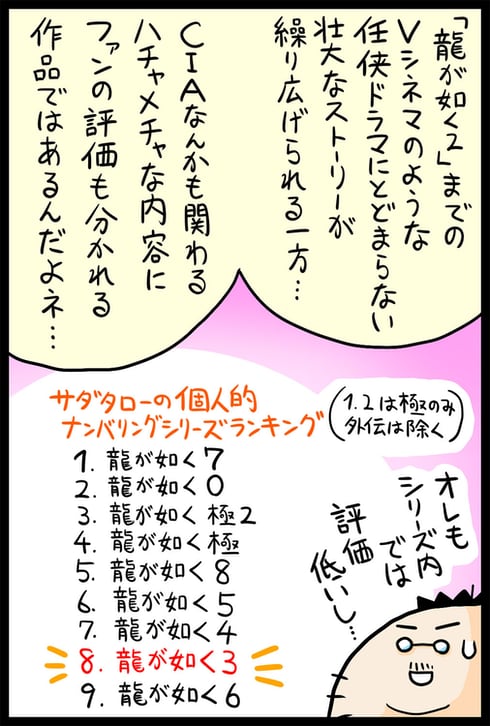 「龍が如く2」までの
Vシネマのような
任侠ドラマにとどまらない
壮大なストーリーが
繰り広げられる一方…
CIAなんかも関わる
ハチャメチャな内容に
ファンの評価も分かれる
作品ではあるんだよネ…
サダタローの個人的
ナンバリングシリーズランキング
(1.2は極のみ
外伝は除く)
1. 龍が如く7
2. 龍が如く0
3. 龍が如く 極2
4. 龍が如く極
5. 龍が如く8
6. 龍が如く5
7. 龍が如く4
8. 龍が如く3
9. 龍が如く6
オレも
シリーズ内
では
評価
低いし…